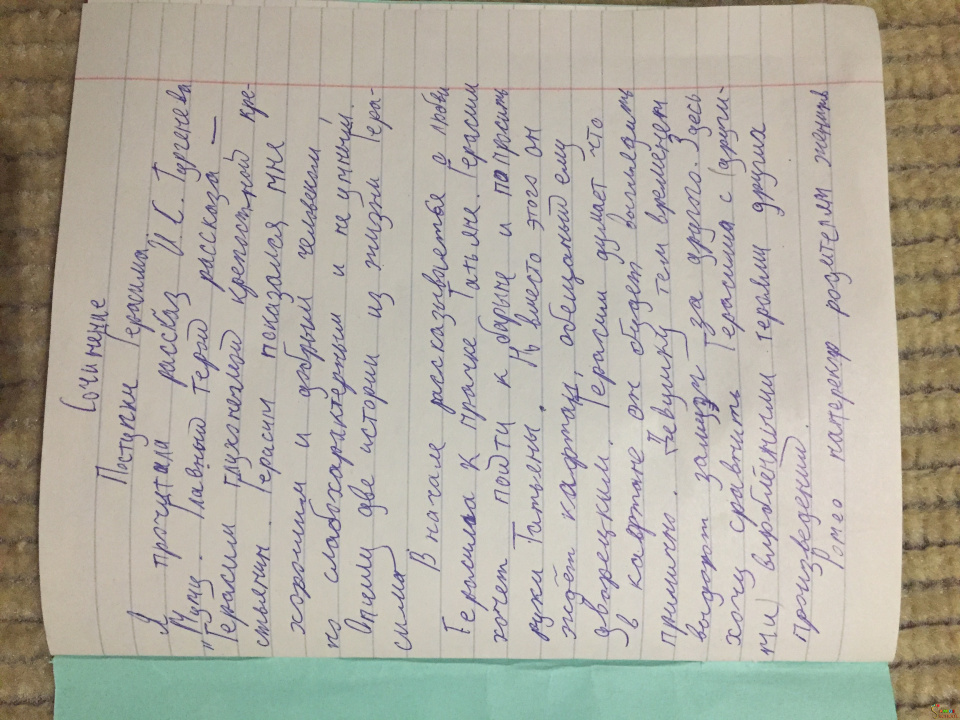 Сочинение
Поступки Герасима.
Я прочитала рассказ И.С. Тургенева
"Муму". Главный герой рассказа —
Герасим глухонемой крепостной кре-
стьянин. Герасим показался мне
хорошим и добрым человеком
но слабохарактерным и не умный.
Опишу две истории из жизни Гера-
сима
В начале рассказываеться о любви
Герасима к прачке Татьяне. Герасим
хочет пойти к барыне и попросить
руки Татьяны. Но вместо этого он
ждёт кафтан, обещаный ему
дворецким. Герасим думает что
в кафтане он будет выглядить
прилично. Девушку тем временем
выдают замуж за другого. Здесь
хочу сравнить Герасима с (други-
ми) влюблёнными героями других
произведений.
Ромео наперекор родителям женился